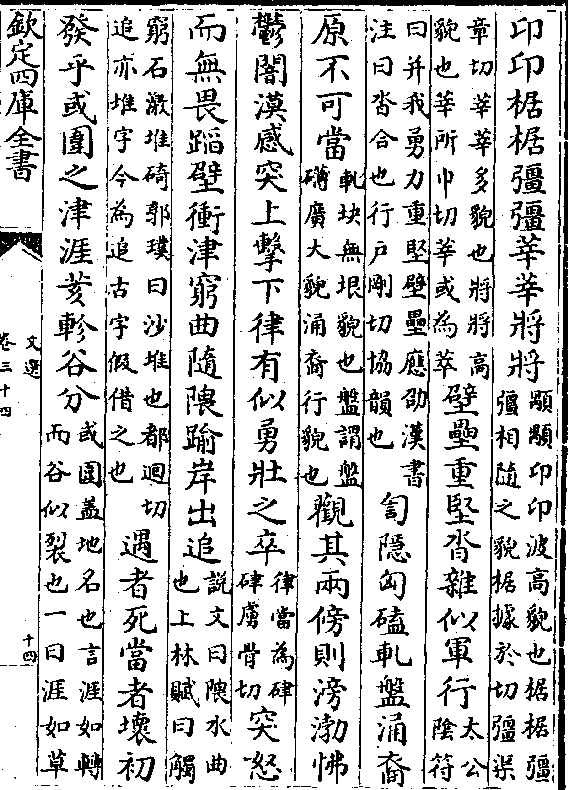 卬卬椐椐彊彊莘莘將將顒顒卬卬波高貌也椐椐彊
彊相隨之貌椐據於切彊渠
章切莘莘多貌也將將高
貌也莘所巾切莘或為萃壁壘重堅沓雜似軍行太公
陰符
曰并我勇力重堅壁壘應劭漢書
注曰沓合也行戶剛切協韻也訇隱匈磕軋盤涌裔
原不可當軋坱無垠貌也盤謂盤
礴廣大貌涌裔行貌也觀其兩傍則滂渤怫
鬱闇漠感突上擊下律有似勇壯之卒律當為硉
硉慮骨切突怒
而無畏蹈壁衝津窮曲隨隈踰岸出追說文曰隈水曲
也上林賦曰觸
窮石激堆碕郭璞曰沙堆也都迴切
追亦堆字今為追古字假借之也遇者死當者壞初
發乎或圍之津涯荄軫谷分或圍蓋地名也言涯如轉
而谷似裂也一曰涯如草
欽定四庫全書
文選
卷三十四
十四